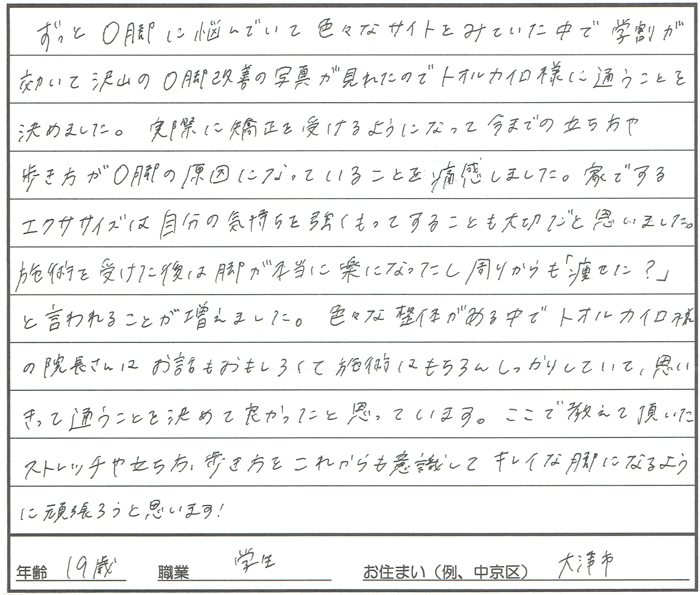 ずっと O脚に悩んでいて 色々なサイトをみていた中で 学割が
効いて 沢山の O脚改善の写真が見れたのでトオルカイロ様に通うことを
決めました。 実際に矯正を受けるようになって今までの立ち方や
歩き方がO脚の原因になっていることを痛感しました。家でする
エクササイズは自分の気持ちを強くもってすることも大切だと思いました。
施術を受けた後は脚が本当に楽になったし周りからも「痩せた?」
と言われることが増えました。 色々な整体がある中でトオルカイロ様
の院長さんは お話もおもしろくて施術はもちろんしっかりしていて、思い
きって通うことを決めて良かったと思っています。ここで教えて頂いた
ストレッチや立ち方、歩き方を これからも意識して キレイな脚になるよう
に頑張ろうと思います!
年齢 19歳 職業 学生 お住まい(例、中京区) 大津市